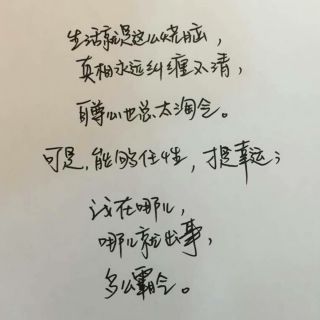 生活就是这么烧脑，
真相永远纠缠不清，
自尊心也总太淘气。
可是，能够任性，才是幸运；
我在哪儿，
哪儿就出事，
多么霸气。